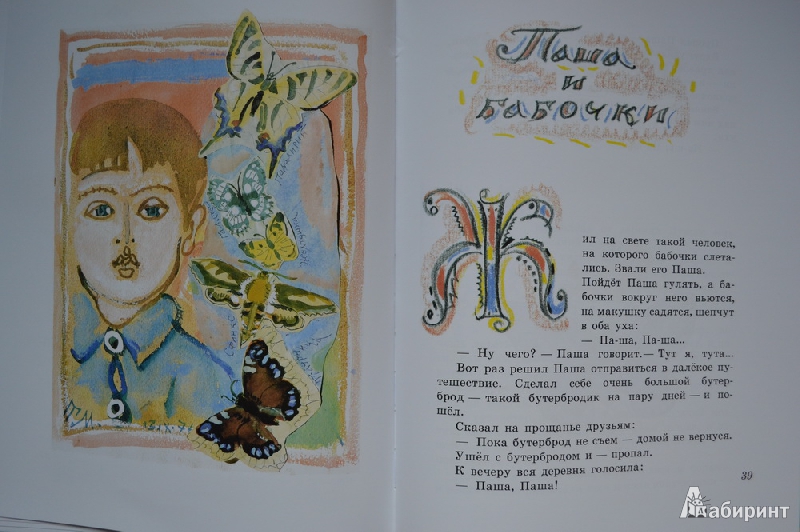 Паша
и
бабочки
Жил на свете такой человек,
на которого бабочки слета-
лись. Звали его Паша.
Пойдёт Паша гулять, а ба-
бочки вокруг него вьются,
на макушку садятся, шепчут
в оба уха:
— Па-ша, Па-ша...
— Ну чего? — Паша говорит.— Тут я, тута...
Вот раз решил Паша отправиться в далёкое пу-
тешествие. Сделал себе очень большой бутер-
брод — такой бутербродик на пару дней — и по-
шёл.
Сказал на прощанье друзьям:
— Пока бутерброд не съем — домой не вернуся.
Ушёл с бутербродом и — пропал.
К вечеру вся деревня голосила:
— Паша, Паша!
39
Лабиринт